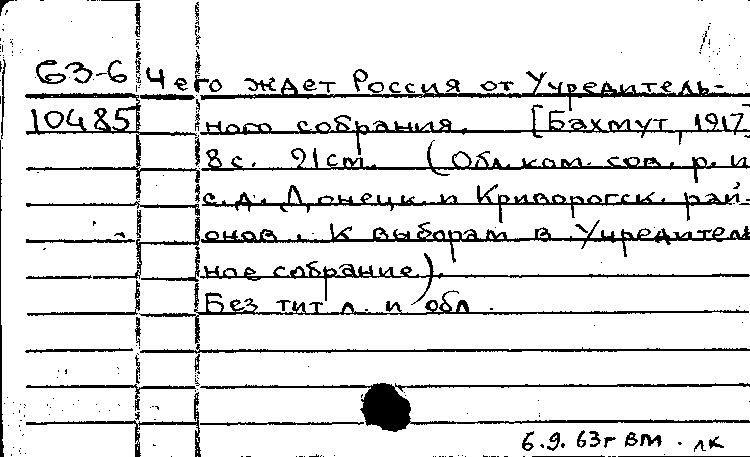 63-6 Чего ждет Россия от Учредитель-
10485 ного собрания. [Бахмут, 1917]
8 с. 21 cm. (Обл. ком. сов. р. и
с. д. Донецк. и Криворогск. рай-
онов. К выборам в Учредитель
ное собрание).
Без тит л. и обл.
6.9.63г ВМ. лк